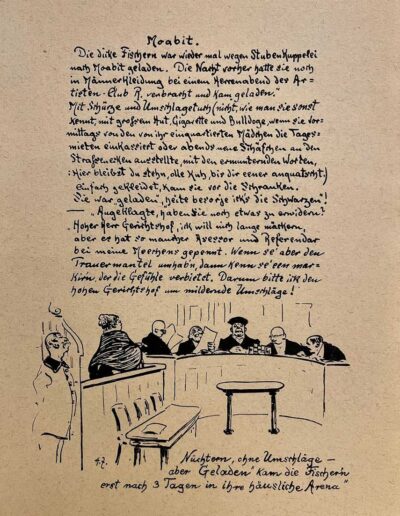 Moabit.
Die dicke Fischern war wieder mal wegen Stubenkuppelei
nach Moabit geladen. Die Nacht vorher hatte sie noch
in Männerkleidung bei einem Herrenabend des Ar-
tisten-Club R. verbracht und kam „geladen."
Mit Schürze und Umschlagetuch (nicht, wie man sie sonst
kennt, mit grossem Hut, Cigarette und Bulldogge, wenn sie vor-
mittags von den von ihr einquartierten Mädchen die Tages-
mieten einkassiert oder abends neue Schäfchen an den
Strassenecken ausstellte, mit den ermunternden Worten,
:Hier bleibst du stehn, olle Kuh, bis dir eener anquatscht.)
einfach gekleidet, kam sie vor die Schranken.
Sie war „geladen", „heite besorje ick's die Schwarzen"!
— „Angeklagte, haben Sie noch etwas zu erwidern?
„Hoher Herr Gerichtshof, ick will nich lange meckern,
aber es hat so mancher Asessor und Referendar
bei meine Meechens gepennt. Wenn se aber den
Trauermantel umhab'n, dann kenn se een mar-
kirn, der die Gefühle verbietet. Darum bitte ick den
hohen Gerichtshof um mildernde Umschläge!
H.Z.
Nüchtern, ohne Umschläge —
aber „Geladen" kam die Fischer'n
erst nach 3 Tagen in ihre häusliche „Arena"